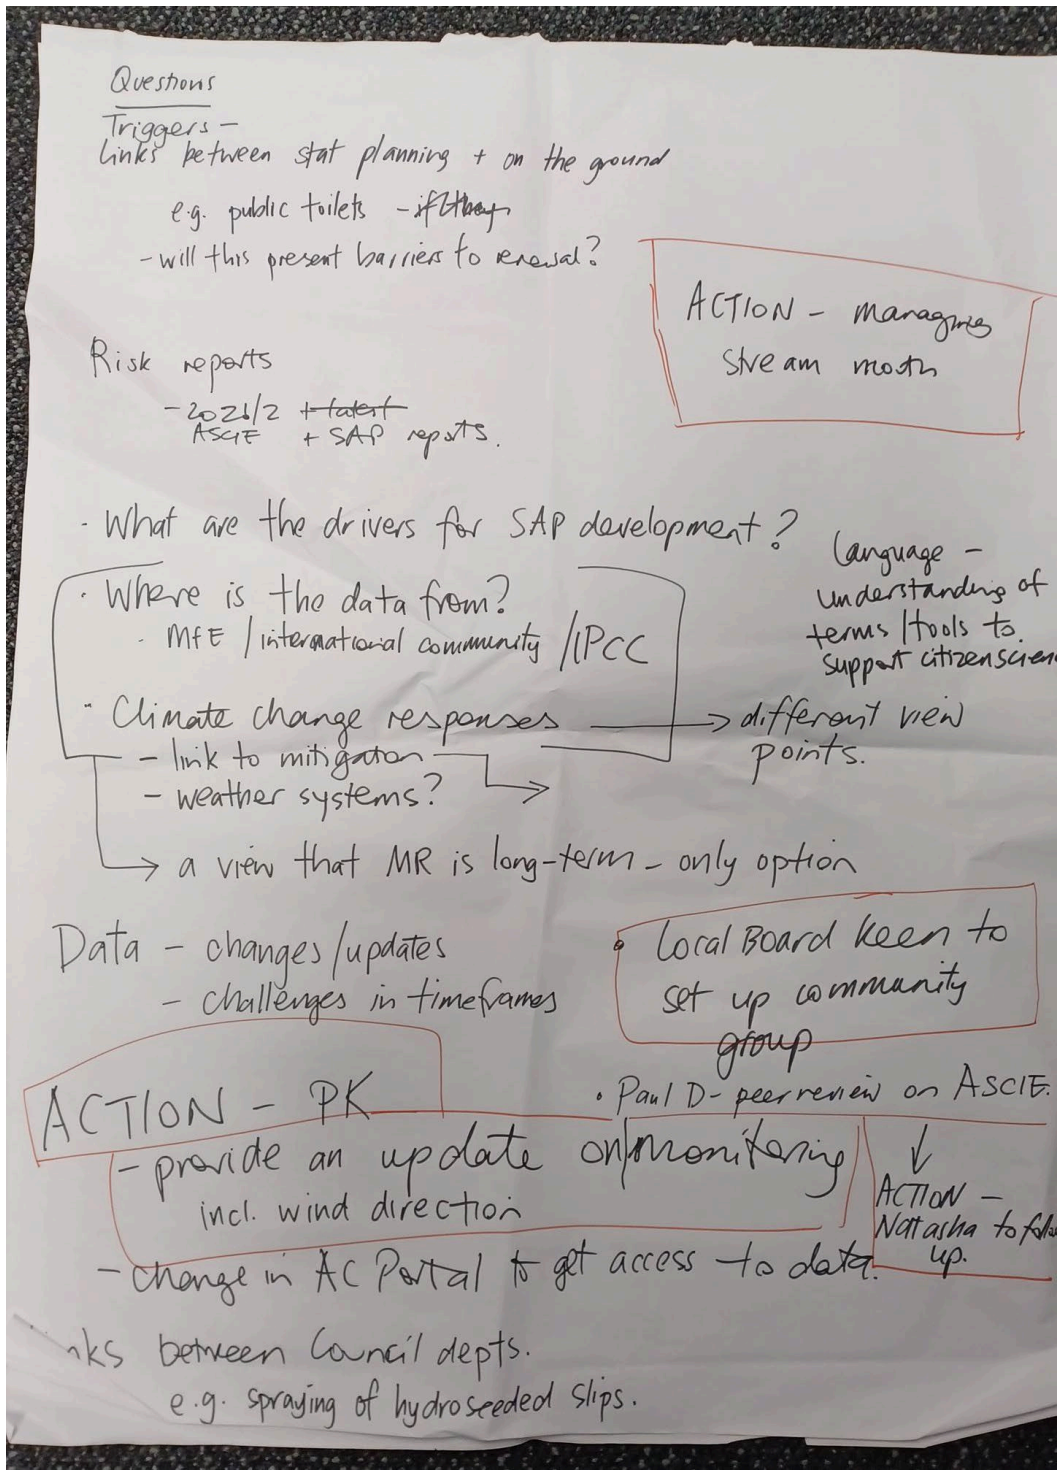 Questions
Triggers -
Links between stat planning + on the ground
e.g. public toilets - if they
- will this present barriers to renewal?
ACTION - managing
stream mouth
Risk reports
- 2021/2 + latest
ASCIE + SAP reports.
· What are the drivers for SAP development?
Language -
understanding of
terms/tools to
support citizen scien
· Where is the data from?
· MfE / international community / IPCC
· Climate change responses → different view
points.
- link to mitigaton →
- weather systems?
→ a view that MR is long-term - only option
Data - changes/updates
- challenges in timeframes
• Local Board keen to
set up community
group
• Paul D - peer review on ASCIE.
↓
ACTION -
Natasha to follo
up.
ACTION - PK
- provide an update on monitoring
incl. wind direction
- change in AC Portal to get access to data.
nks between Council depts.
e.g. spraying of hydroseeded slips.